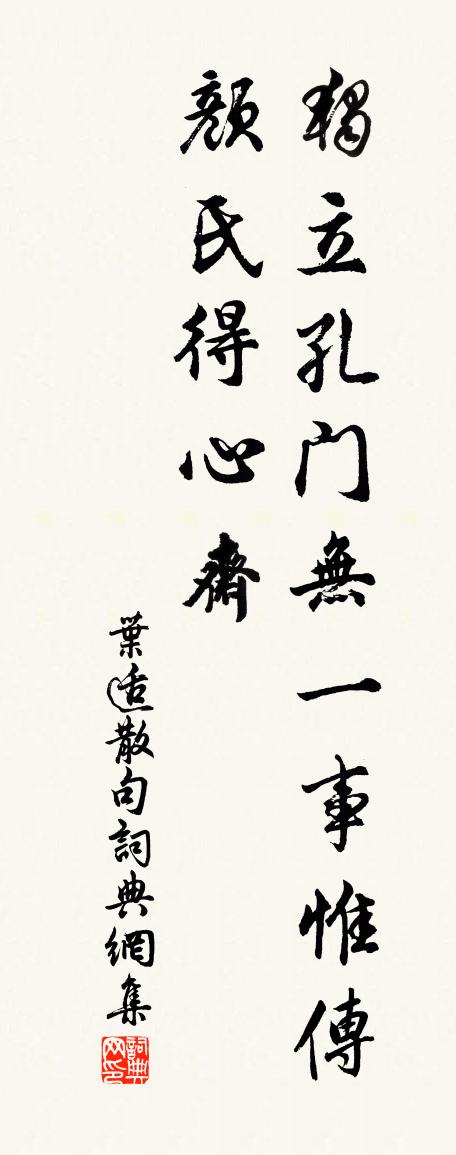 獨立孔門無一事惟傳
顏氏得心齋
葉适散句詞典網集
詞典网印